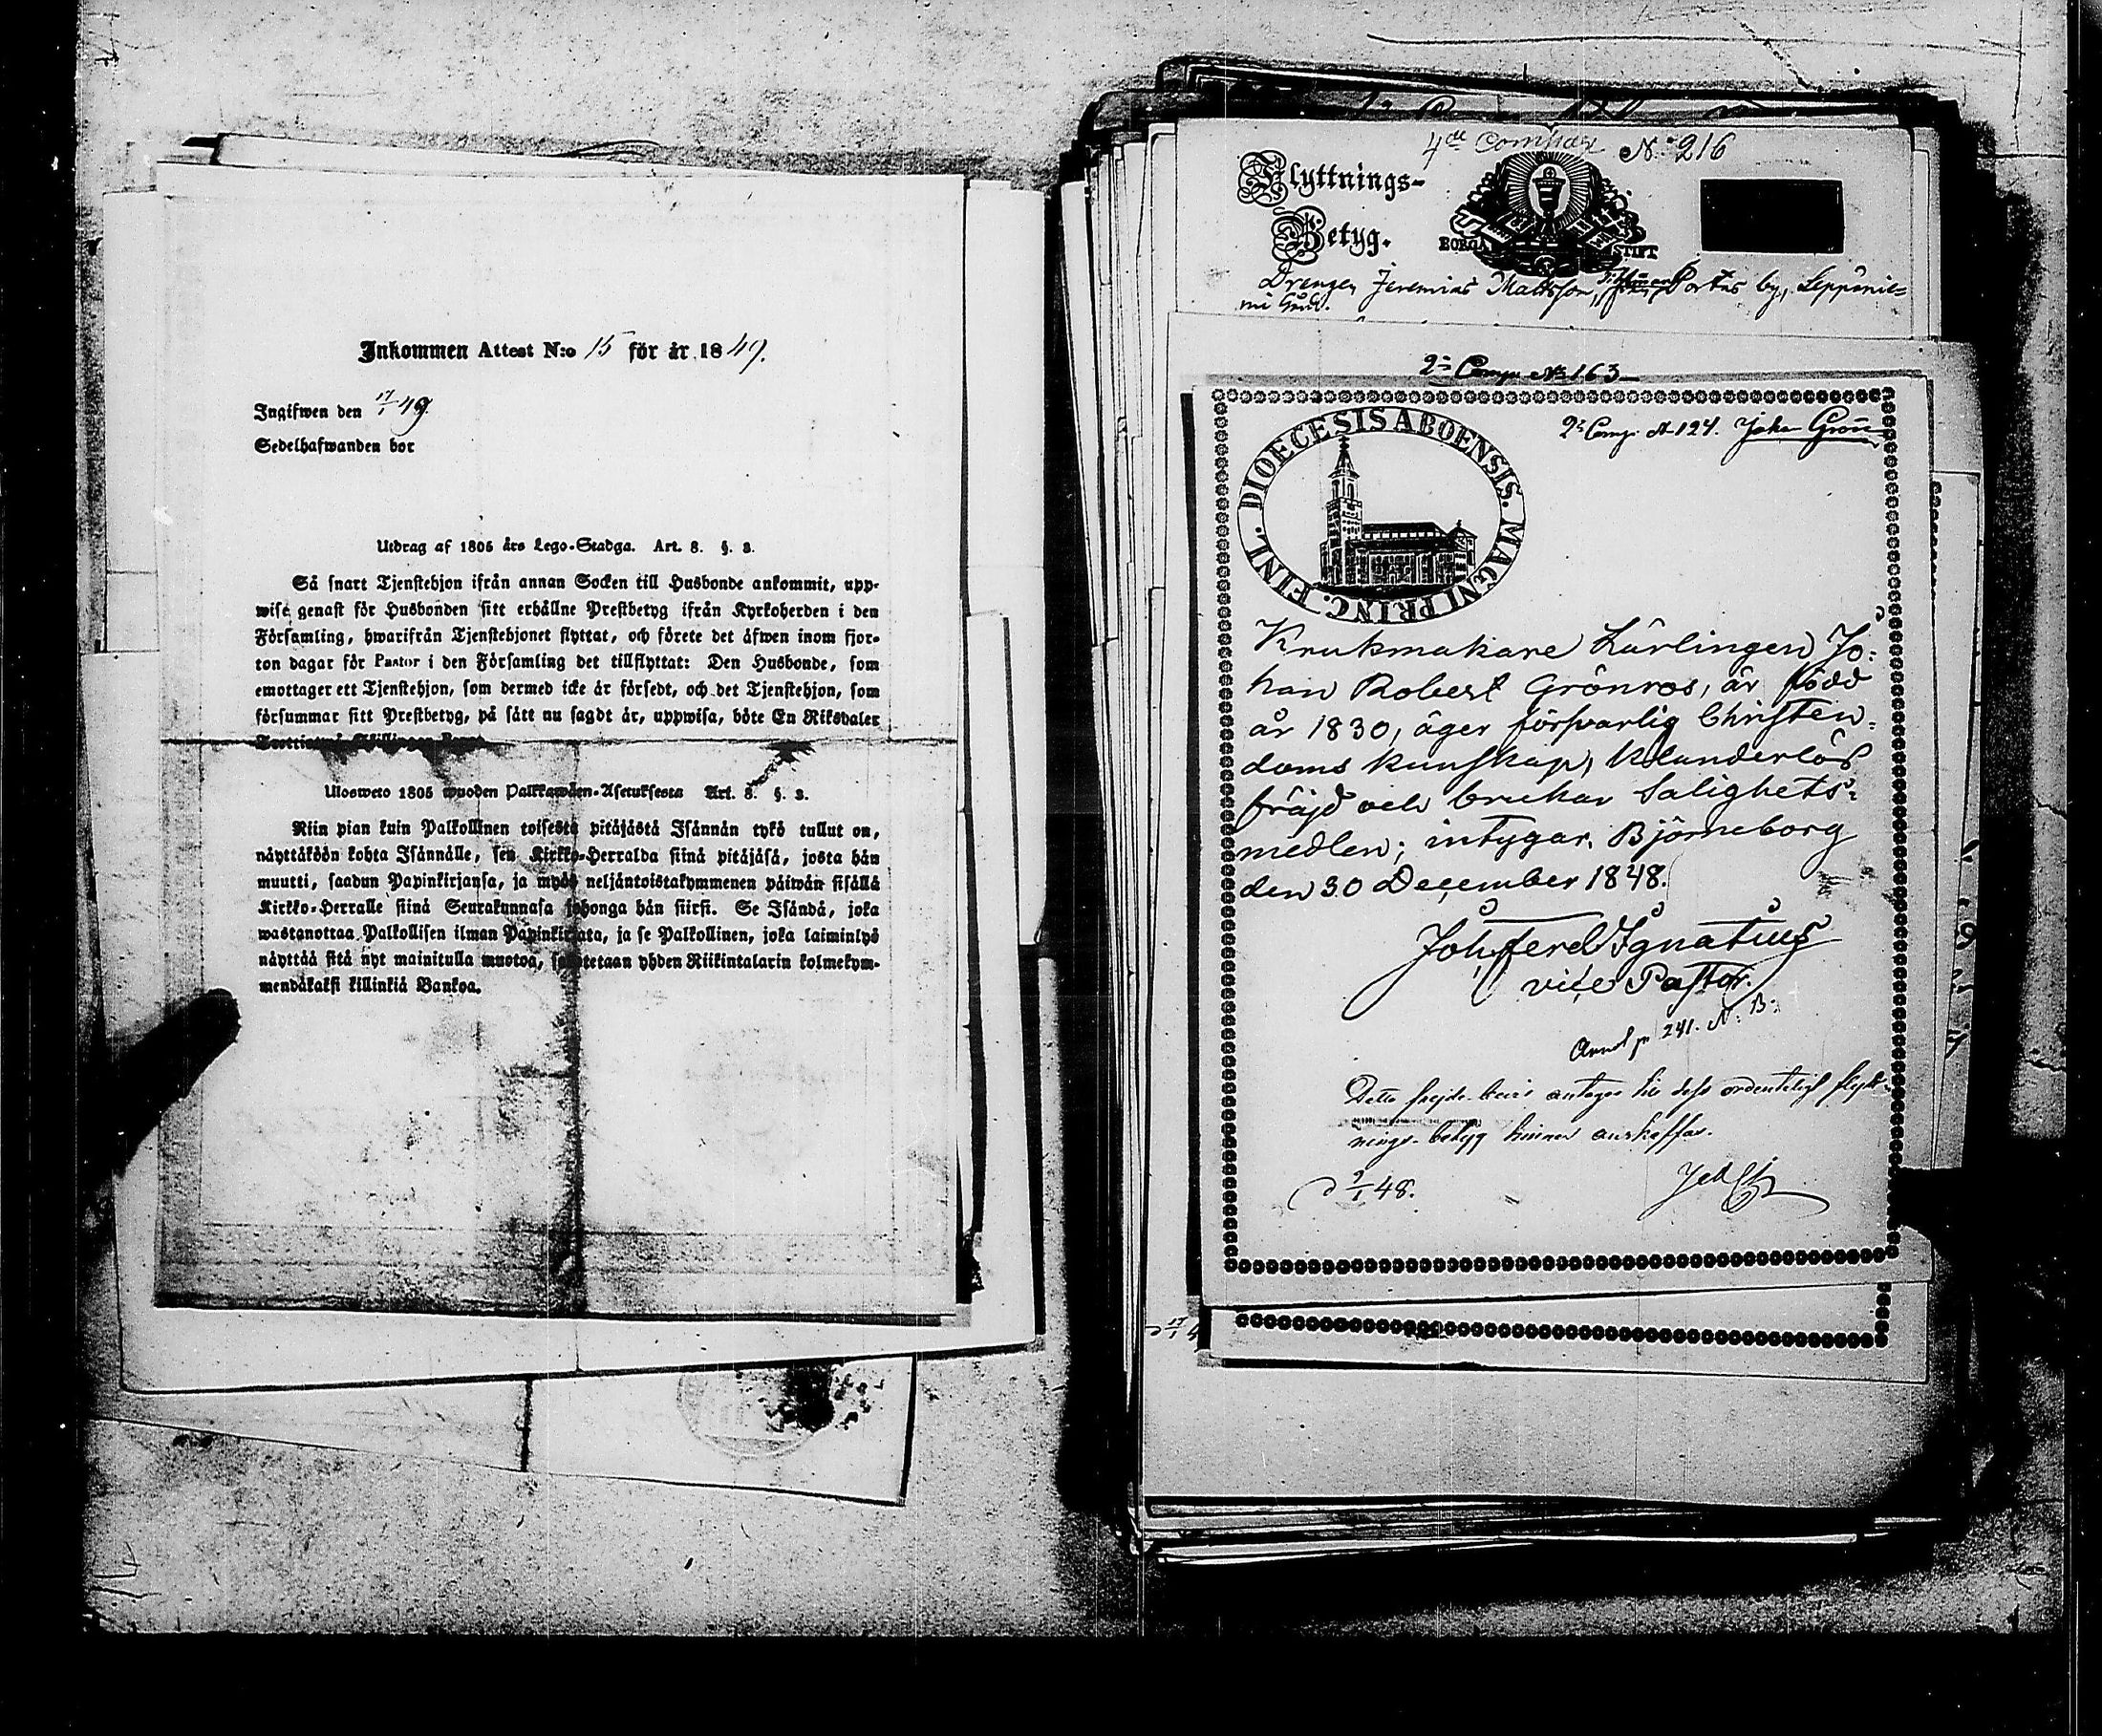 Inkommen Attest N:o 15 för år 1849.
Ingifwen den 17/1 49.
Sedelhafwanden bor
Utdrag af 1805 års Lego-Stadga. Art. 8. §. 3.
Så snart Tjenstehjon ifrån annan Socken till Husbonde ankommit, upp-
wise genast för Husbonden sitt erhållne Prestbetyg ifrån Kyrkoherden i den
Församling, hwarifrån Tjenstehjonet flyttat, och förete det äfwen inom fjor-
ton dagar för Pastor i den Församling det tillflyttat: Den Husbonde, som
emottager ett Tjenstehjon, som dermed icke är försedt, och det Tjenstehjon, som
försummar sitt Prestbetyg, på sätt nu sagdt är, uppwisa, böte En Riksdaler
Ulosweto 1805 wuoden Palkkawäen-Asetuksesta Art. 8. §. 3.
Niin pian kuin Palkollinen toisesta pitäjästä Isännän tykö tullut on,
näyttäköön kohta Isännälle, sen Kirkko-Herralda siinä pitäjäsä, josta hän
muutti, saadun Papinkirjansa, ja myös neljäntoistakymmenen päiwän sisällä
Kirkko-Herralle siinä Seurakunnasa johonga hän siirsi. Se Isändä, joka
wastanottaa Palkollisen ilman Papinkirjata, ja se Palkollinen, joka laiminlyö
näyttää sitä nyt mainitulla muotoa, sakotetaan yhden Riikintalarin kolmekym-
mendäkaksi killinkiä Bankoa.
4de Compar N:o 216
Flyttnings-
Betyg.
BORGÅ STIFT
Drengen Jeremias Mattsson, Portas by, Leppänie-
mi
2:a Comp. No 163
2:a Comp. No 124. Joha Grön
DIOECESIS ABOENSIS. MAGNI PRINC. FINL.
Krukmakare Lärlingen Jo-
han Robert Grönros, är född
år 1830, äger försvarlig Christen-
doms kunskap, klanderlös
fräjd och brukar Salighets-
medlen; intygar. Björneborg
den 30 December 1848.
Joh. Ferd. Ignatius
vice Pastor.
Annot p. 241. N: B:
Detta frejde-bevis antages tils dess ordenteligt flytt-
nings-betyg hinner anskaffas.
d 9/1 48.